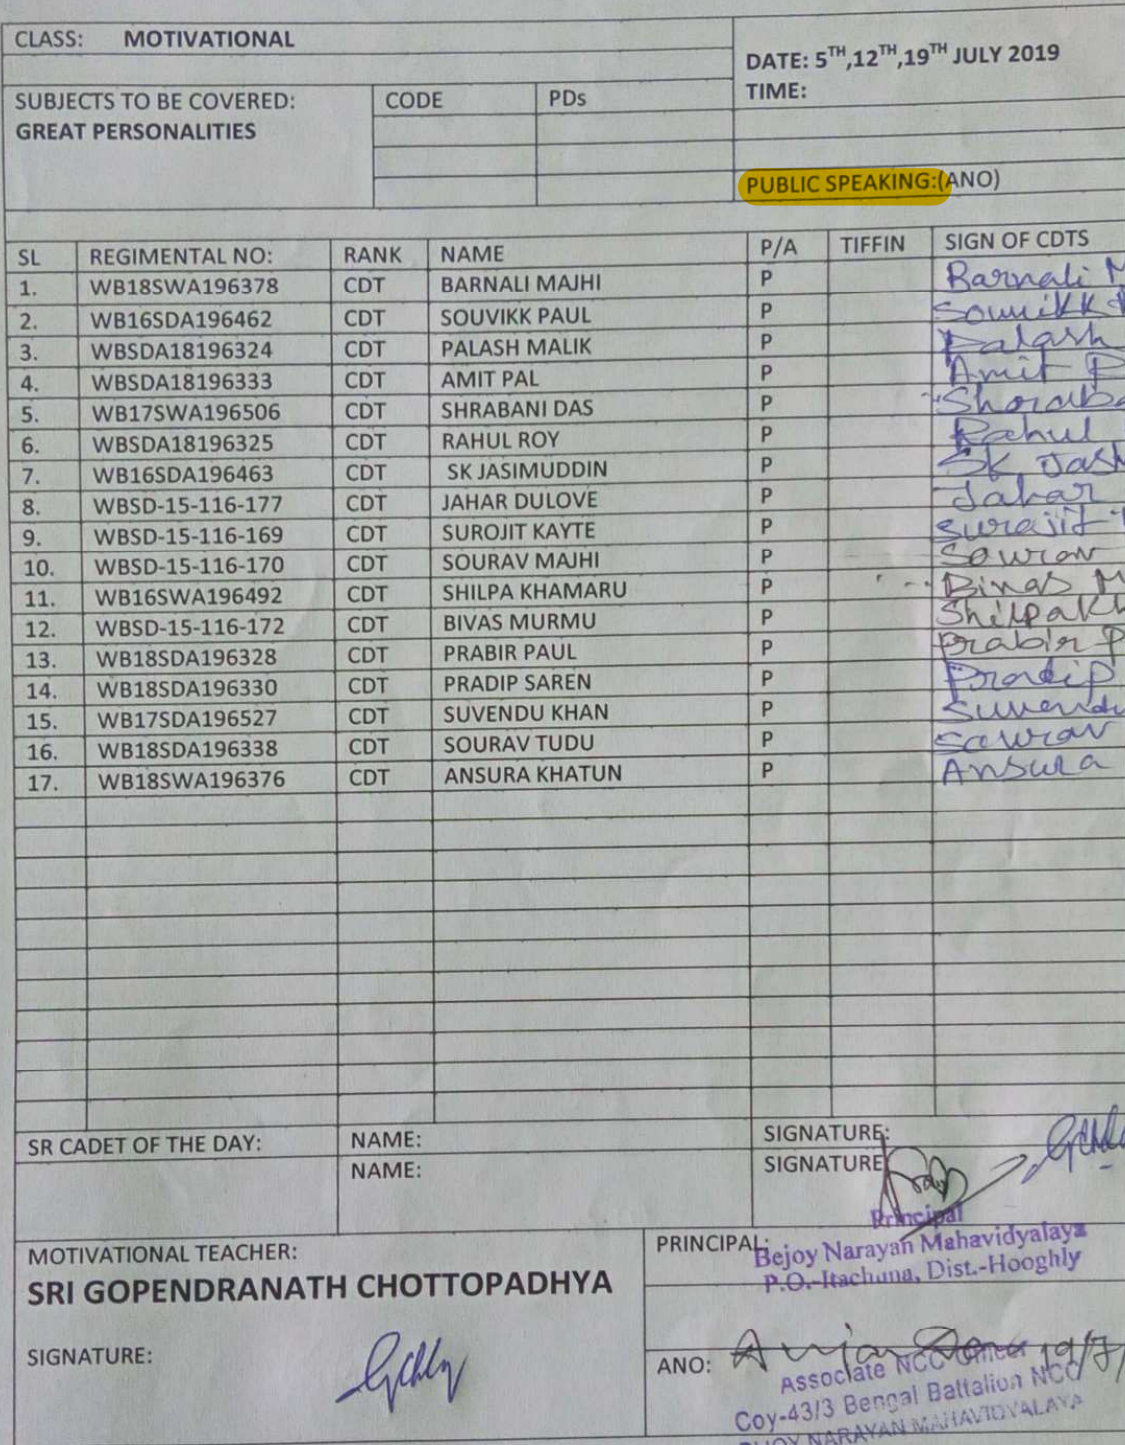 CLASS: MOTIVATIONAL
DATE: 5TH,12TH,19TH JULY 2019
TIME:
SUBJECTS TO BE COVERED: CODE PDs
GREAT PERSONALITIES
PUBLIC SPEAKING:(ANO)
SL REGIMENTAL NO: RANK NAME P/A TIFFIN SIGN OF CDTS
1. WB18SWA196378 CDT BARNALI MAJHI P Barnali M
2. WB16SDA196462 CDT SOUVIKK PAUL P Souvikk
3. WBSDA18196324 CDT PALASH MALIK P Palash
4. WBSDA18196333 CDT AMIT PAL P Amit P
5. WB17SWA196506 CDT SHRABANI DAS P
6. WBSDA18196325 CDT RAHUL ROY P Rahul
7. WB16SDA196463 CDT SK JASIMUDDIN P SK Jash
8. WBSD-15-116-177 CDT JAHAR DULOVE P Jahar
9. WBSD-15-116-169 CDT SUROJIT KAYTE P Surajit
10. WBSD-15-116-170 CDT SOURAV MAJHI P Sourav
11. WB16SWA196492 CDT SHILPA KHAMARU P Bivas M
12. WBSD-15-116-172 CDT BIVAS MURMU P Shilpa Kh
13. WB18SDA196328 CDT PRABIR PAUL P Prabir P
14. WB18SDA196330 CDT PRADIP SAREN P Pradip
15. WB17SDA196527 CDT SUVENDU KHAN P Suvendu
16. WB18SDA196338 CDT SOURAV TUDU P Sourav
17. WB18SWA196376 CDT ANSURA KHATUN P Ansura
SR CADET OF THE DAY: NAME: SIGNATURE:
NAME: SIGNATURE
Principal
MOTIVATIONAL TEACHER: PRINCIPAL:
Bejoy Narayan Mahavidyalaya
SRI GOPENDRANATH CHOTTOPADHYA
P.O.-Itachuna, Dist.-Hooghly
SIGNATURE: ANO: 19/7/
Associate NCC Officer
Coy-43/3 Bengal Battalion NCC
BIJOY NARAYAN MAHAVIDYALAYA